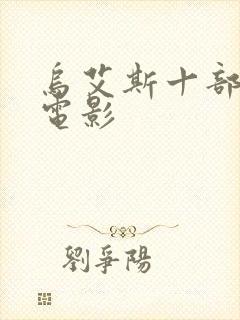 烏艾斯十部
電影
劉爭陽